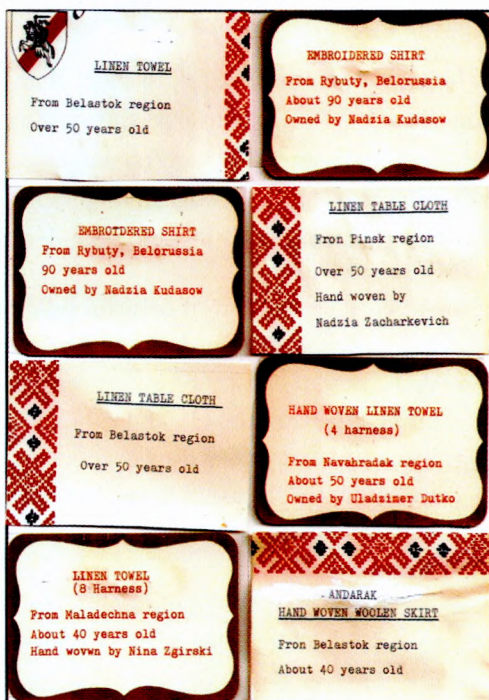 LINEN TOWEL
From Belastok region
Over 50 years old
EMBROIDERED SHIRT
From Rybuty, Belorussia
About 90 years old
Owned by Nadzia Kudasow
EMBROTDERED SHIRT
From Rybuty, Belorussia
90 years old
Owned by Nadzia Kudasow
LINEN TABLE CLOTH
Fron Pinsk region
Over 50 years old
Hand woven by
Nadzia Zacharkevich
LINEN TABLE CLOTH
From Belastok region
Over 50 years old
HAND WOVEN LINEN TOWEL
(4 harness)
From Navahradak region
About 50 years old
Owned by Uladzimer Dutko
LINEN TOWEL
(8 Harness)
From Maladechna region
About 40 years old
Hand wovwn by Nina Zgirski
ANDARAK
HAND WOVEN WOOLEN SKIRT
Fron Belastok region
About 40 years old